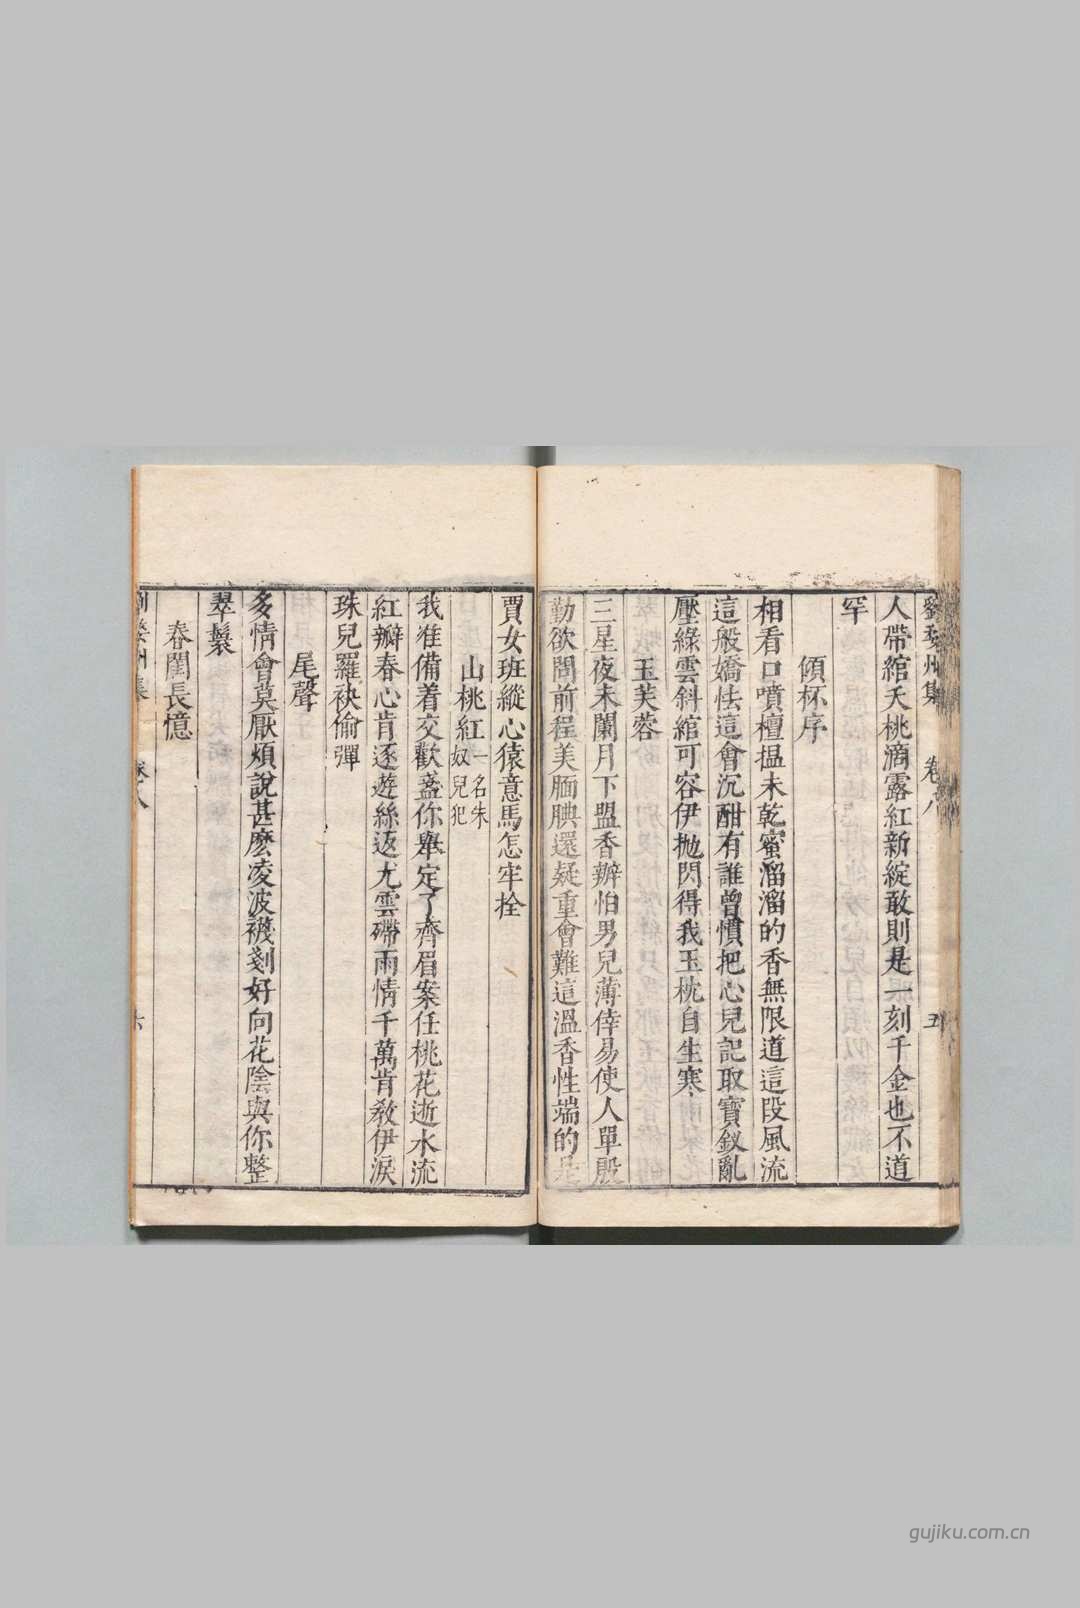 劉婺州集 卷八 五
人帶綰夭桃滴露紅新綻敢則是一刻千金也不道
罕
傾杯序
相看口噴檀揾未乾蜜溜溜的香無限道這段風流
這般嬌怯這會沉酣有誰曾慣把心兒記取寶釵亂
壓綠雲斜綰可容伊抛閃得我玉枕自生寒
玉芙蓉
三星夜未闌月下盟香辦怕男兒薄倖易使人單殷
勤欲問前程美腼腆還疑重會難這溫香性端的是
賈女班縱心猿意馬怎牢拴
山桃紅一名朱奴兒犯
我准備着交歡盞你舉定了齊眉案任桃花逝水流
紅瓣春心肯逐遊絲返尤雲殢雨情千萬肯教伊淚
珠兒羅袂偷彈
尾聲
多情會莫厭煩說甚麽凌波襪剗好向花陰與你整
翠鬟
春閨長憶
州集 卷八 六
gujiku.com.cn